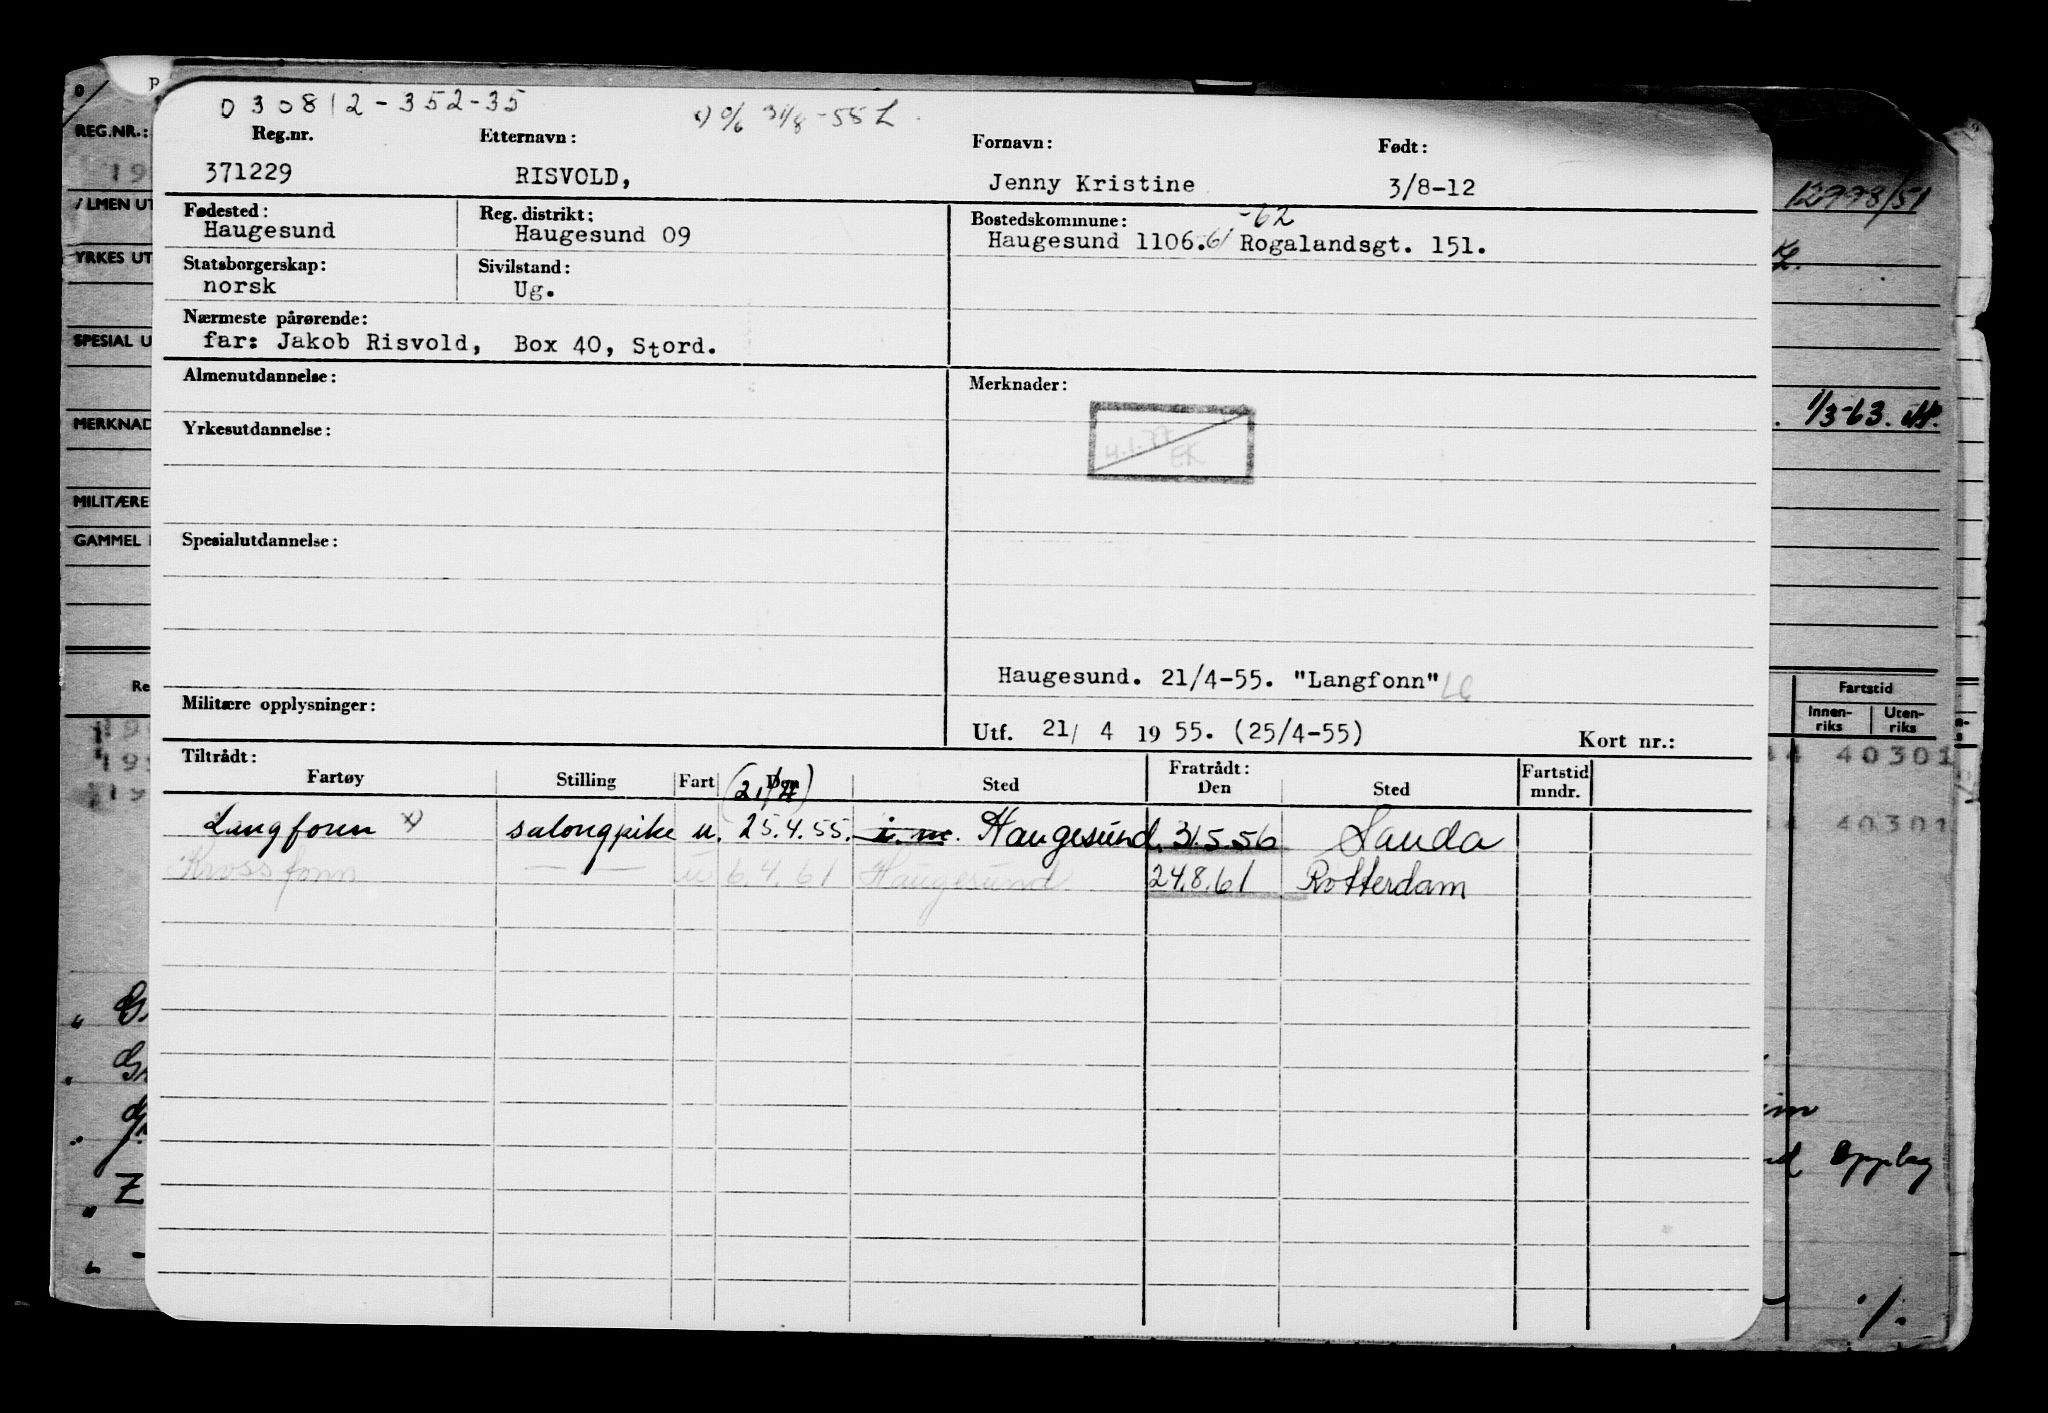 030812-352-35
x) o/b 31/8-55 L
Reg.nr. Etternavn: Fornavn: Født:
371229 RISVOLD, Jenny Kristine 3/8-12
Fødested: Reg. distrikt: Bostedskommune: -62
Haugesund Haugesund 09 Haugesund 1106. 61 Rogalandsgt. 151.
Statsborgerskap: Sivilstand:
norsk Ug.
Nærmeste pårørende:
far: Jakob Risvold, Box 40, Stord.
Almenutdannelse: Merknader:
EK
Yrkesutdannelse:
Spesialutdannelse:
Haugesund. 21/4-55. "Langfonn"
Militære opplysninger:
Utf. 21/ 4 1955. (25/4-55) Kort nr.:
Tiltrådt: Fratrådt: Fartstid
Fartøy Stilling Fart Den Sted Den Sted mndr.
(21/4)
Langfonn x) salongpike u. 25.4.55. i.m. Haugesund. 31.5.56 Sauda
Krossfonn — — u 6.4.61 Haugesund 24.8.61 Rotterdam
REG.NR.:
YRKES UT
SPESIAL U
MERKNAD
MILITÆRE
GAMMEL
12998/51
1/3-63.
Fartstid
Innen-riks Uten-riks
40301
40301
Opplag